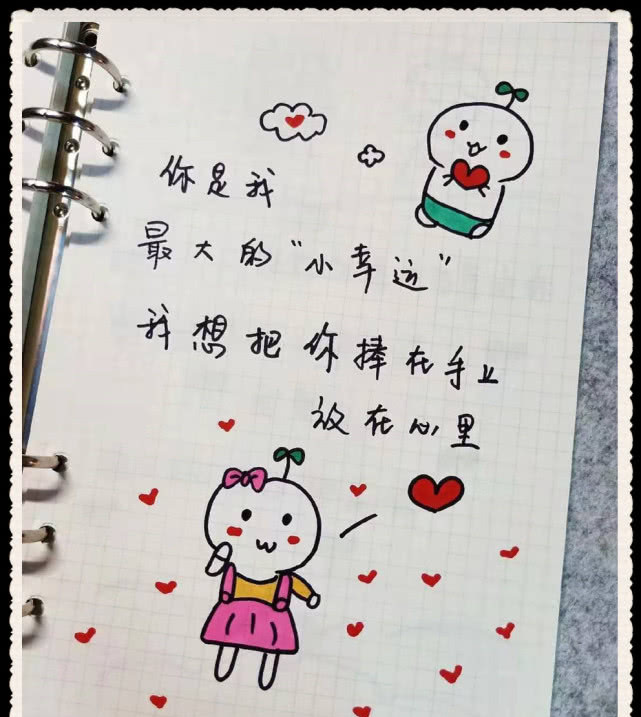 你是我
最大的“小幸运”
我想把你捧在手上
放在心里